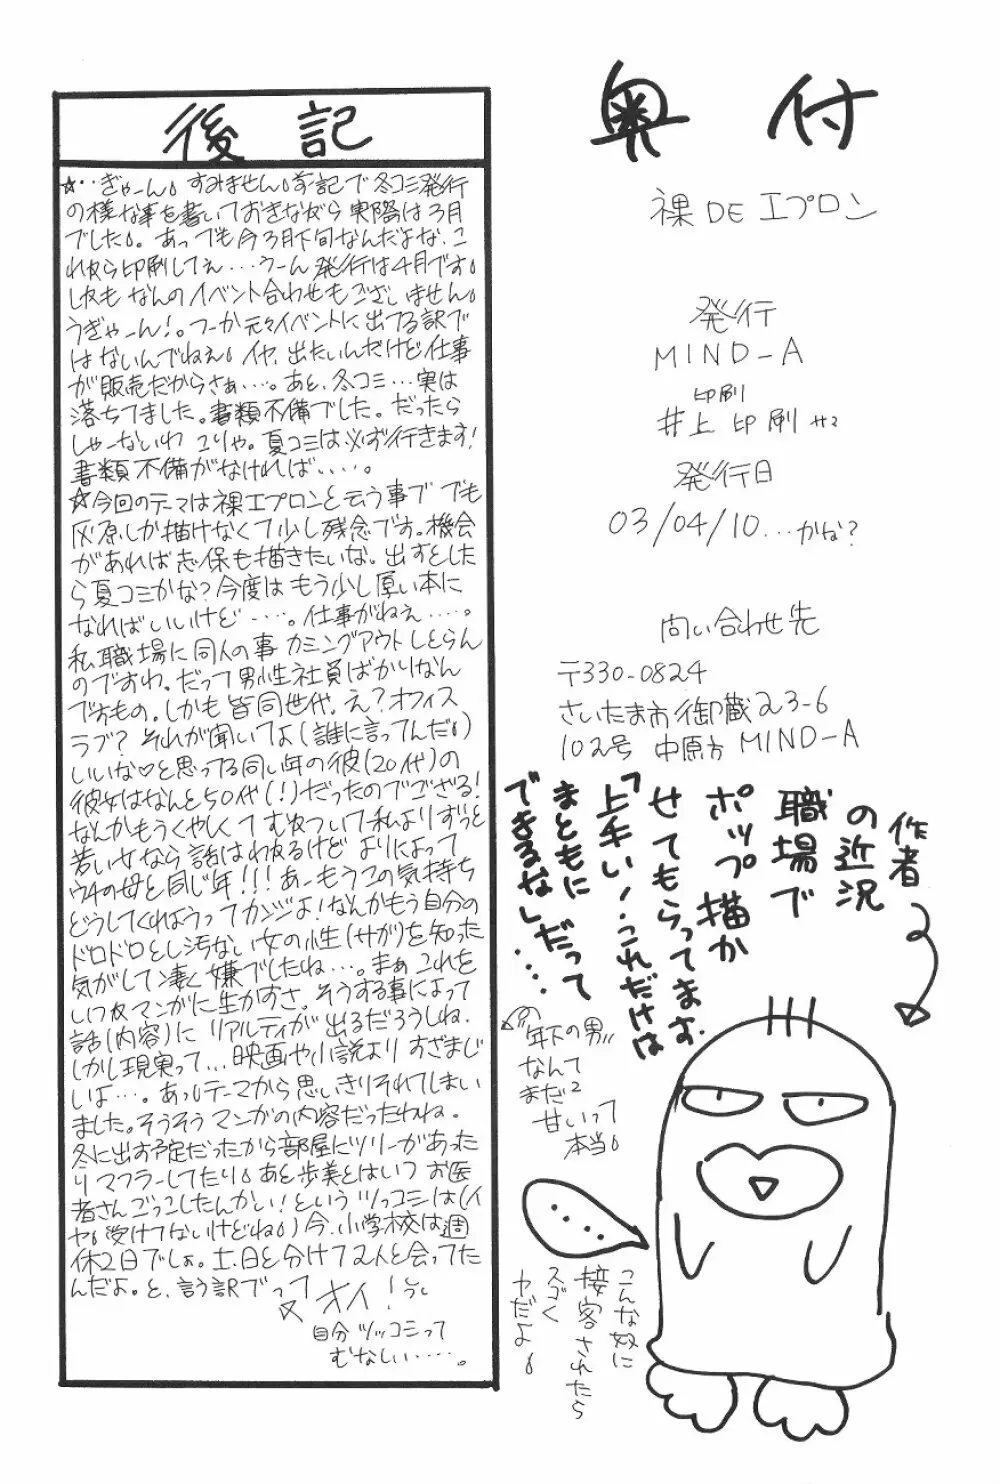 後記
☆‥ぎゃーん。すみません。前記で冬コミ発行
の様な事を書いておきながら実際は3月
でした。あっでも今3月下旬なんだよな、こ
れから印刷してぇ…うーん発行は4月です。
しかもなんのイベント合わせもございません。
うぎゃーん!。つーか元々イベントに出てる訳で
はないんでねぇ。イヤ、出たいんだけど仕事
が販売だからさぁ…。あと、冬コミ…実は
落ちてました。書類不備でした。だったら
しゃーないわ こりゃ。夏コミは必ず行きます!
書類不備がなければ‥‥。
☆今回のテーマは裸エプロンと云う事で でも
灰原しか描けなくて少し残念です。機会
があれば志保も描きたいな。出すとした
ら夏コミかな?今度はもう少し厚い本に
なればいいけど‥‥。仕事がねぇ‥‥。
私職場に同人の事 カミングアウトしとらん
のですわ。だって男性社員ばかりなん
ですもの。しかも皆同世代。え?オフィス
ラブ?それが聞いてよ(誰に言ってんだ)
いいな♡と思ってる同い年の彼(20代)の
彼女はなんと50代(!)だったのでござる!
なんかもうくやしくて むかついて私よりずっと
若い女なら話はわかるけど よりによって
ウチの母と同じ年!!!あーもうこの気持ち
どうしてくれようってカンジよ!なんかもう自分の
ドロドロとし汚ない女の性(サガ)を知った
気がして凄く嫌でしたね…。まぁこれを
いつかマンガに生かすさ。そうする事によって
話(内容)に リアルティが出るだろうしね、
しかし現実って…映画や小説より すざまじ
いよ…。あっテーマから思いきりそれてしまい
ました。そうそうマンガの内容だったわね。
冬に出す予定だったから部屋にツリーがあった
りマフラーしてたり。あと歩美とはいつお医
者さんごっこしたんかい!というツッコミは(イ
ヤ。受けてないけどね)今、小学校は週
休2日でしょ。土、日と分けて2人と会ってた
んだよ。と、言う訳でって オイ!
自分ツッコミって
むなしい‥‥。
奥付
裸DEエプロン
発行
MIND-A
印刷
井上印刷サマ
発行日
03/04/10…かな?
問い合わせ先
〒330-0824
さいたま市御蔵23-6
102号 中原方 MIND-A
作者
の近況
職場で
ポップ描か
せてもらってます。
「上手い!」これだけは
まともに
できるな」だって
‥‥
年下の男
なんて
まだ2
甘いって
本当。
‥‥
こんな奴に
接客されたら
スゴく
ヤだよ。